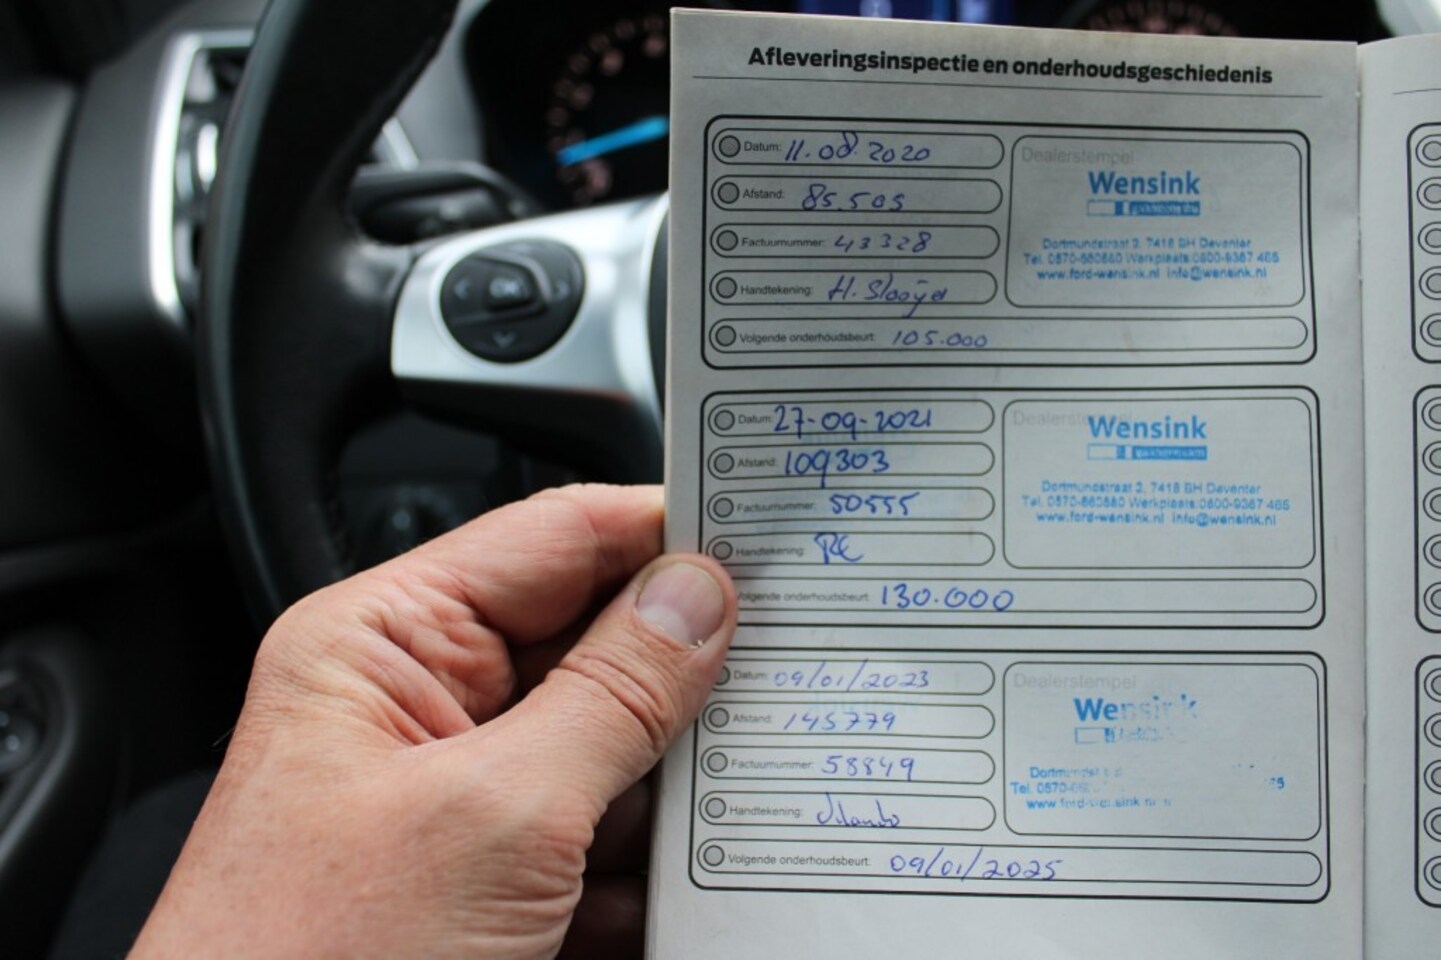 Afleveringsinspectie en onderhoudsgeschiedenis
Datum: 11.08.2020
Afstand: 85.505
Factuurnummer: 43328
Handtekening: H. Slooijer
Volgende onderhoudsbeurt: 105.000
Dealerstempel
Wensink
Dortmundstraat 3, 7418 BH Deventer
Tel. 0570-660660 Werkplaats:0800-9367 465
www.ford-wensink.nl info@wensink.nl
Datum: 27-09-2021
Afstand: 109303
Factuurnummer: 50555
Handtekening:
Volgende onderhoudsbeurt: 130.000
Dealerstempel
Wensink
Dortmundstraat 3, 7418 BH Deventer
Tel. 0570-660660 Werkplaats:0800-9367 465
www.ford-wensink.nl info@wensink.nl
Datum: 09/01/2023
Afstand: 145779
Factuurnummer: 58849
Handtekening:
Volgende onderhoudsbeurt: 09/01/2025
Dealerstempel
Wensink
Tel. 0570-66
OK